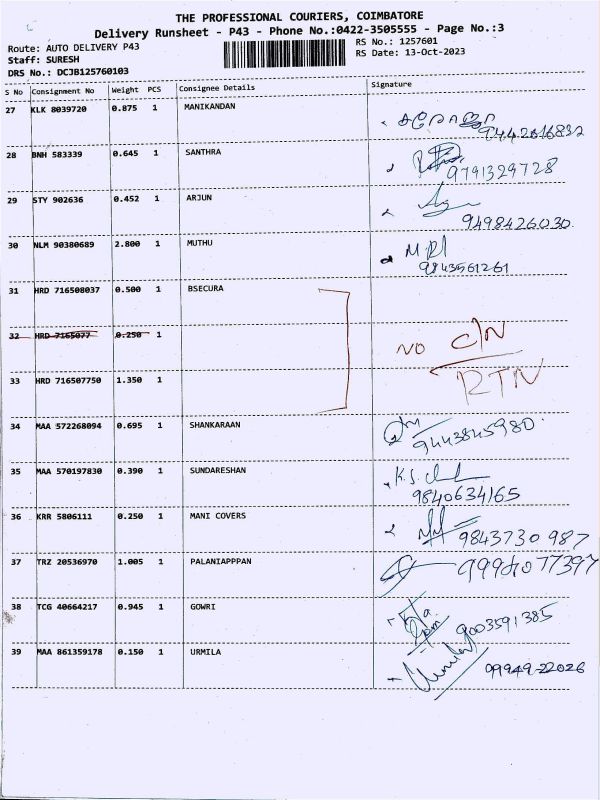 THE PROFESSIONAL COURIERS, COIMBATORE
Delivery Runsheet - P43 - Phone No.:0422-3505555 - Page No.:3
Route: AUTO DELIVERY P43 RS No.: 1257601
Staff: SURESH RS Date: 13-Oct-2023
DRS No.: DCJB125760103
S No Consignment No Weight PCS Consignee Details Signature
27 KLK 8039720 0.875 1 MANIKANDAN
9442616832
28 BNH 583339 0.645 1 SANTHRA
9791329728
29 STY 902636 0.452 1 ARJUN
9498426030
30 NLM 90380689 2.800 1 MUTHU
9843561261
31 HRD 716508037 0.500 1 BSECURA
32 HRD 7165077 0.250 1
NO C/N
RTN
33 HRD 716507750 1.350 1
34 MAA 572268094 0.695 1 SHANKARAAN
9443845980
35 MAA 570197830 0.390 1 SUNDARESHAN
K.S.
9840634165
36 KRR 5806111 0.250 1 MANI COVERS
9843730987
37 TRZ 20536970 1.005 1 PALANIAPPPAN
38 TCG 40664217 0.945 1 GOWRI
9003591385
39 MAA 861359178 0.150 1 URMILA
Urmila 99949-22026